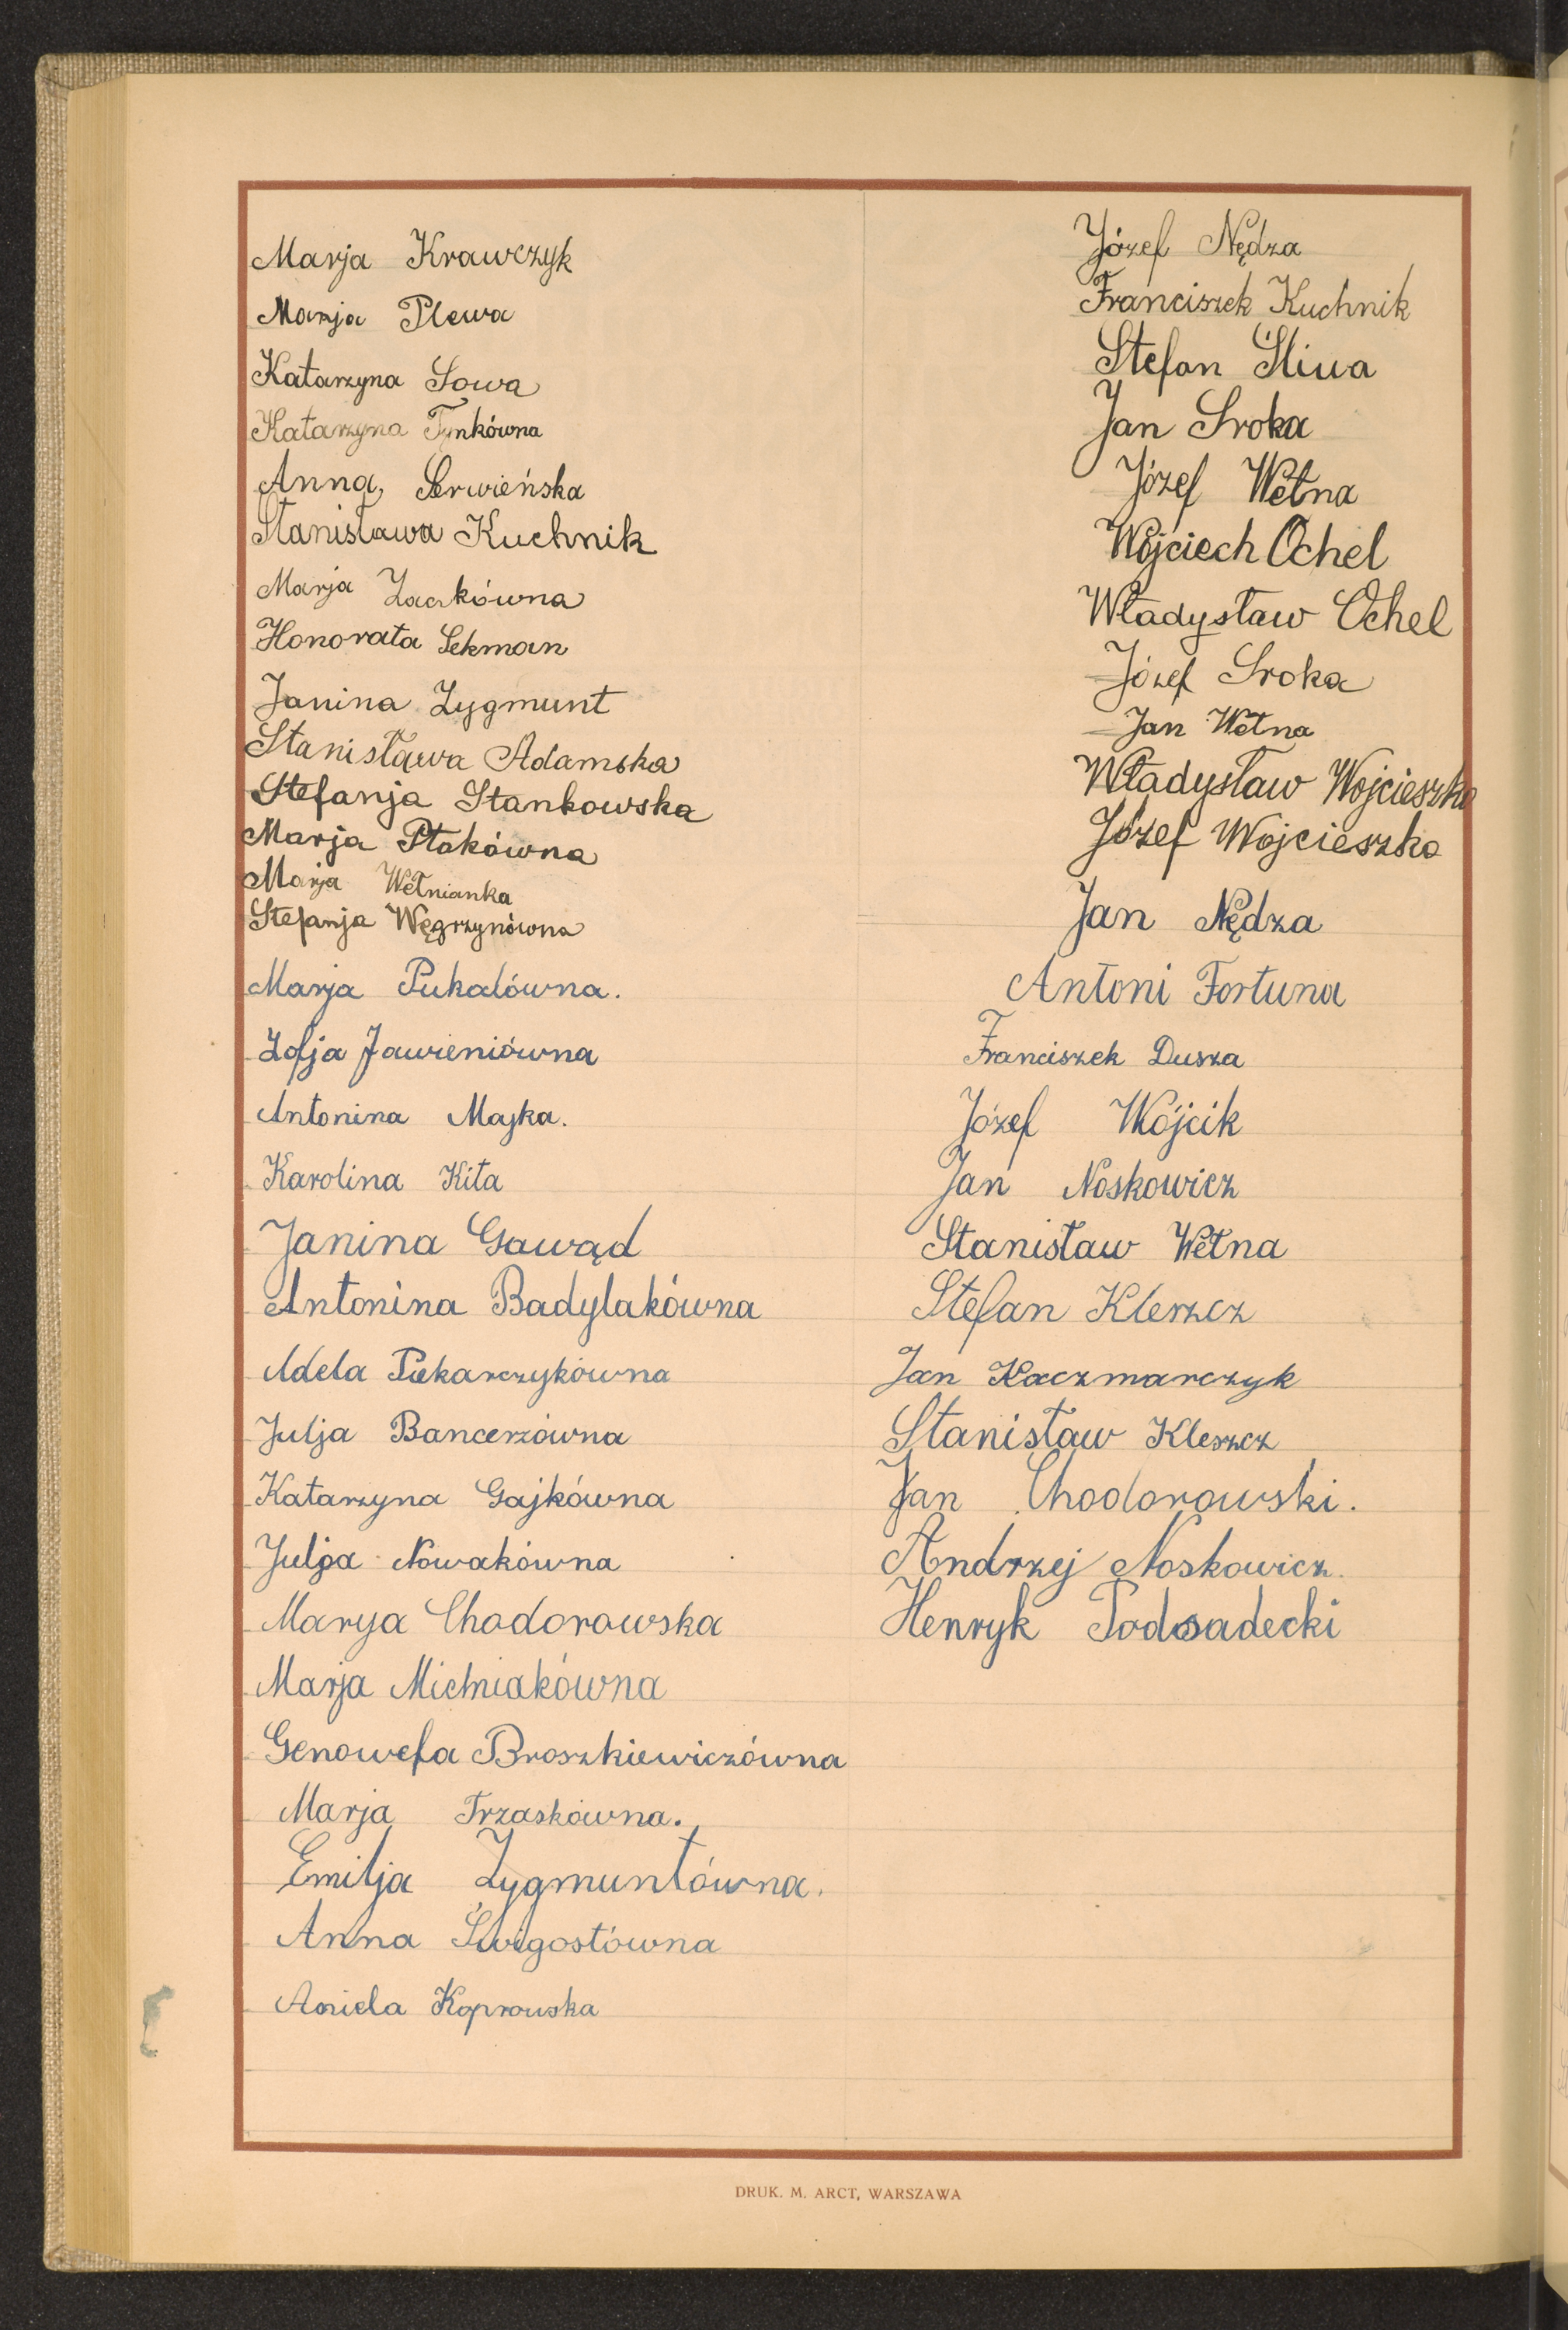 Marja Krawczyk
Marja Plewa
Katarzyna Sowa
Katarzyna Tynkówna
Anna Serwieńska
Stanisława Kuchnik
Marja Żaczkówna
Honorata Sekman
Janina Zygmunt
Stanisława Adamska
Stefanja Stankowska
Marja Ptakówna
Marja Wełnianka
Stefanja Węgrzynówna
Marja Pukalówna.
Zofja Jawieniówna
Antonina Majka.
Karolina Kita
Janina Gawąd
Antonina Badylakówna
Adela Piekarczykówna
Julja Bancerzówna
Katarzyna Gajkówna
Julja Nowakówna
Marya Chodorowska
Marja Michniakówna
Genowefa Broszkiewiczówna
Marja Trzaskówna.
Emilja Zygmuntówna.
Anna Świgostówna
Aniela Koprowska
Józef Nędza
Franciszek Kuchnik
Stefan Śliwa
Jan Sroka
Józef Wełna
Wojciech Ochel
Władysław Ochel
Józef Sroka
Jan Wełna
Władysław Wojcieszko
Józef Wojcieszko
Jan Nędza
Antoni Fortuna
Franciszek Dusza
Józef Wójcik
Jan Noskowicz
Stanisław Wełna
Stefan Kleszcz
Jan Kaczmarczyk
Stanisław Kleszcz
Jan Chodorowski.
Andrzej Noskowicz.
Henryk Podsadecki
DRUK. M. ARCT, WARSZAWA